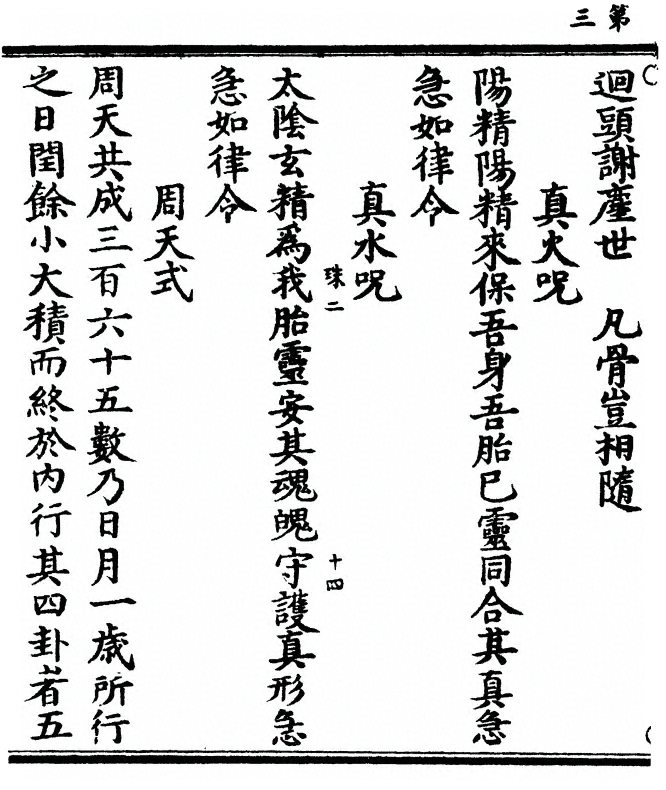 第三
迴頭謝塵世　凡骨豈相隨
真火呪
陽精陽精來保吾身吾胎已靈同合其真急
急如律令
真水呪
珠二　十四
太陰玄精為我胎靈安其魂魄守護真形急
急如律令
周天式
周天共成三百六十五數乃日月一歲所行
之日閏餘小大積而終於內行其四卦者五